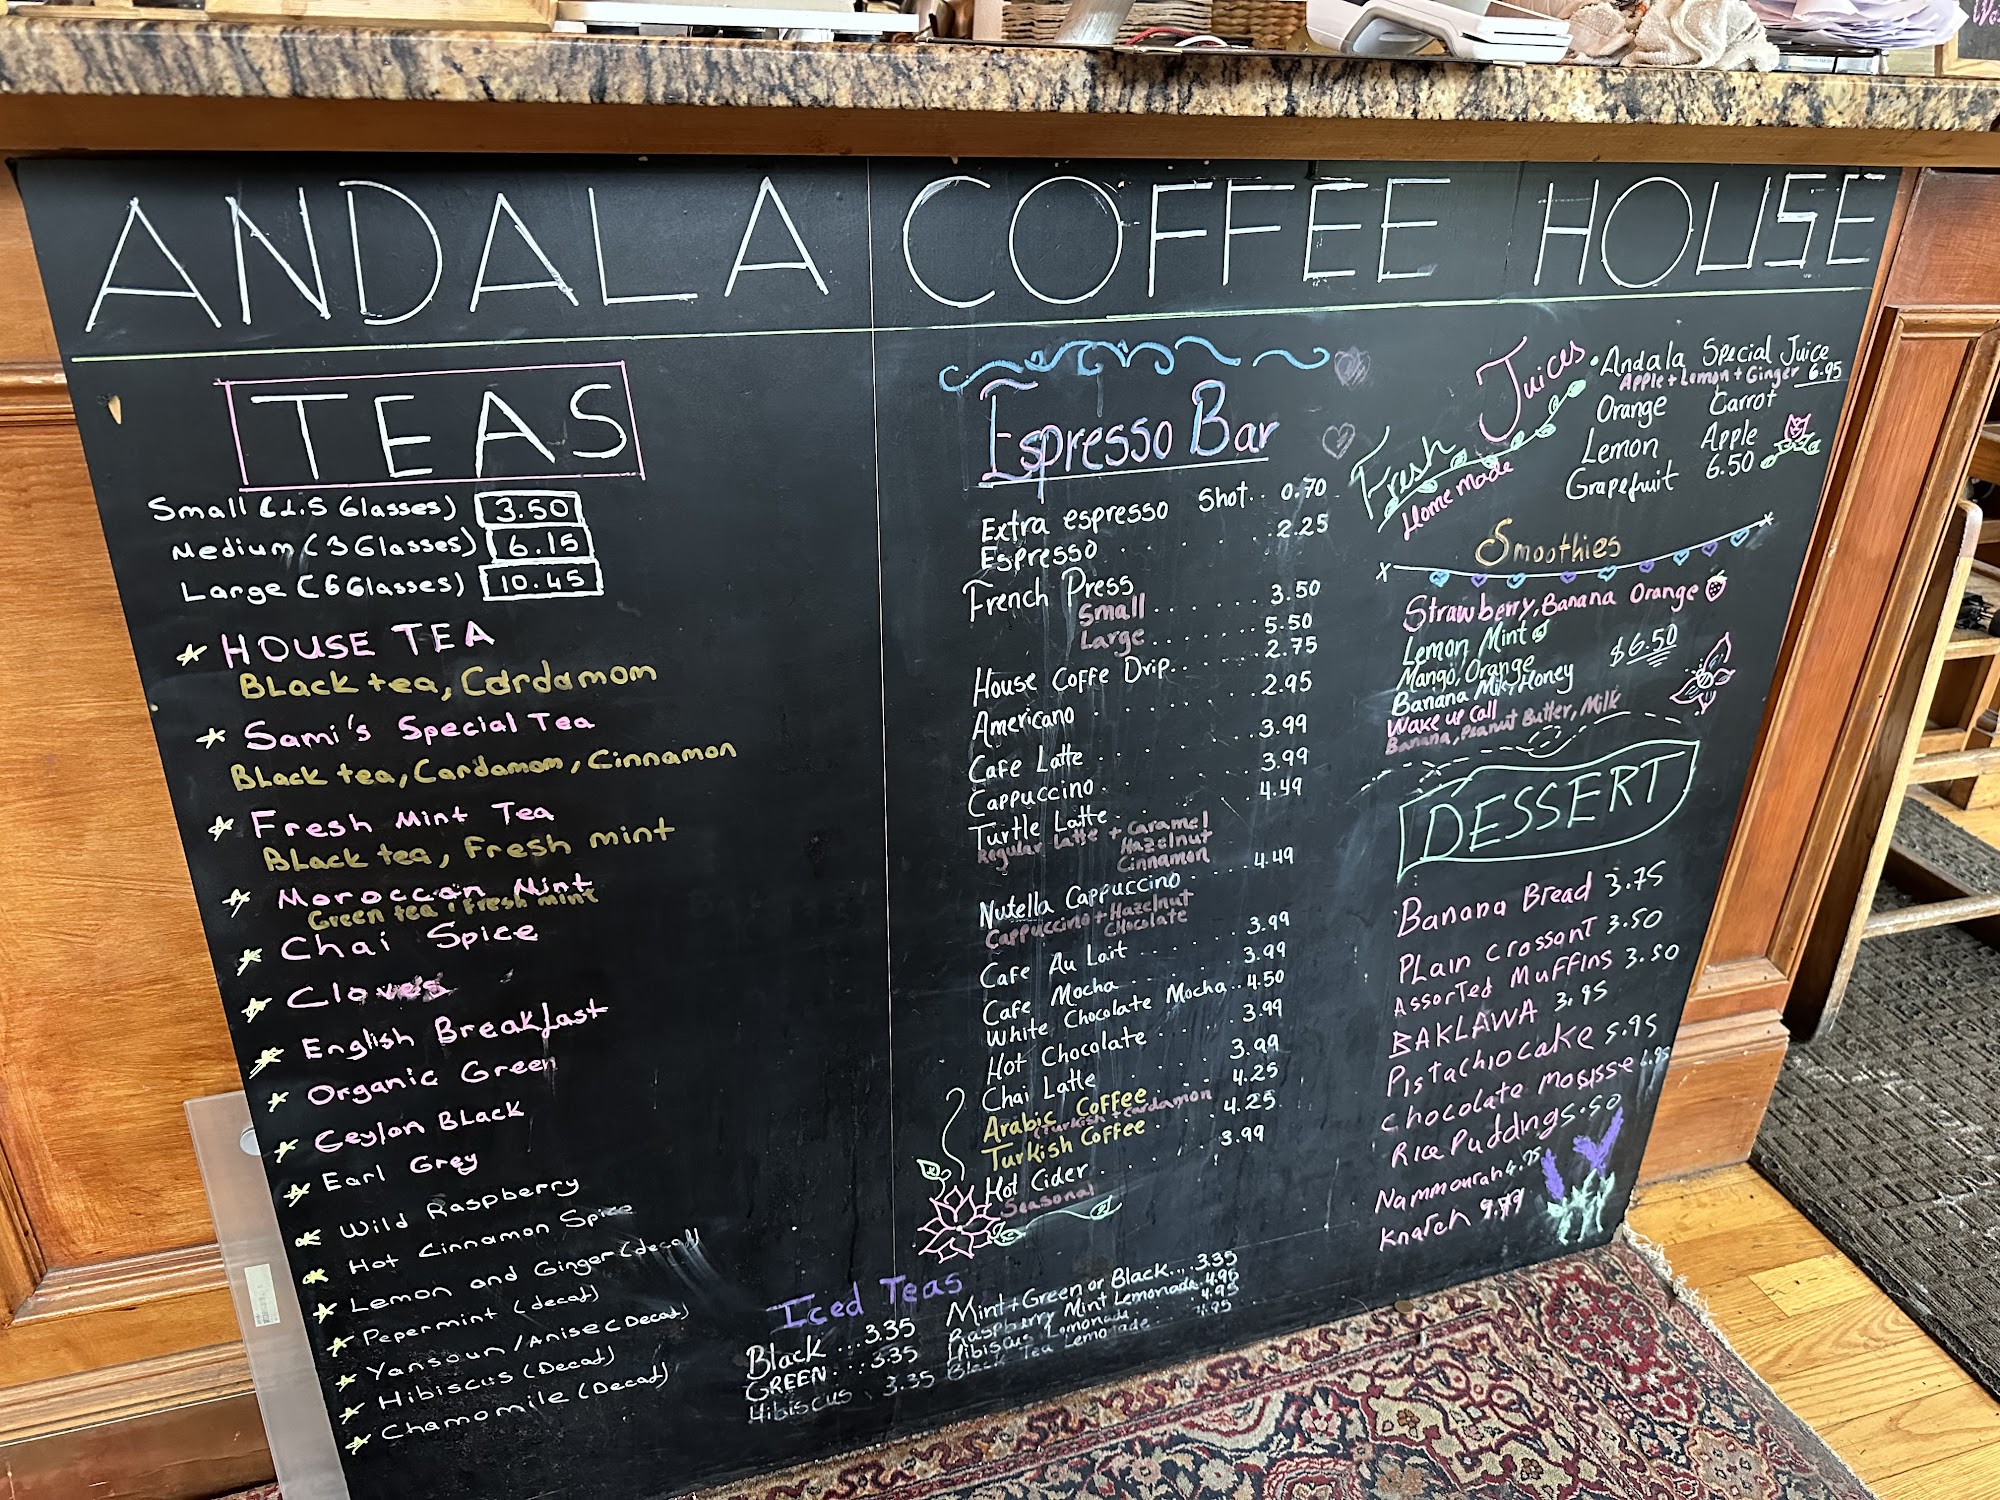 ANDALA COFFEE HOUSE
TEAS
Small (1.5 Glasses) 3.50
Medium (3 Glasses) 6.15
Large (6 Glasses) 10.45
HOUSE TEA
Black tea, Cardamom
Sami's Special Tea
Black tea, Cardamom, Cinnamon
Fresh Mint Tea
Black tea, Fresh mint
Moroccan Mint
Green tea, Fresh mint
Chai Spice
Cloves
English Breakfast
Organic Green
Ceylon Black
Earl Grey
Wild Raspberry
Hot Cinnamon Spice
Lemon and Ginger (decaf)
Pepermint (decaf)
Yansoun/Anise (Decaf)
Hibiscus (Decaf)
Chamomile (Decaf)
Espresso Bar
Extra espresso Shot.. 0.70
Espresso 2.25
French Press
Small 3.50
Large 5.50
House Coffe Drip 2.75
Americano 2.95
Cafe Latte 3.99
Cappuccino 3.99
Turtle Latte 4.49
Regular Latte + Caramel
Hazelnut
Cinnamon
Nutella Cappuccino 4.49
Cappuccino + Hazelnut
Chocolate
Cafe Au Lait 3.99
Cafe Mocha 3.99
White Chocolate Mocha.. 4.50
Hot Chocolate 3.99
Chai Latte 3.99
Arabic Coffee 4.25
(Turkish + Cardamon
Turkish Coffee 4.25
Hot Cider 3.99
Seasonal
Iced Teas
Black ...3.35
GREEN... 3.35
Hibiscus . 3.35
Mint+Green or Black...3.35
Raspberry Mint Lemonade 4.95
Hibiscus Lemonade 4.95
Black Tea Lemonade 4.95
Fresh Juices
Home made
Andala Special Juice
Apple + Lemon + Ginger 6.95
Orange Carrot
Lemon Apple
Grapefruit 6.50
Smoothies
Strawberry, Banana Orange
Lemon Mint
Mango, Orange
$6.50
Banana Milk, Honey
Wake up Call
Banana, Peanut Butter, Milk
DESSERT
Banana Bread 3.75
PLain CrossanT 3.50
Assorted Muffins 3.50
BAKLAWA 3.95
Pistachio Cake 5.95
Chocolate Mosisse
Rice Pudding 5.50
Nammourah 4.95
Knafeh 9.99